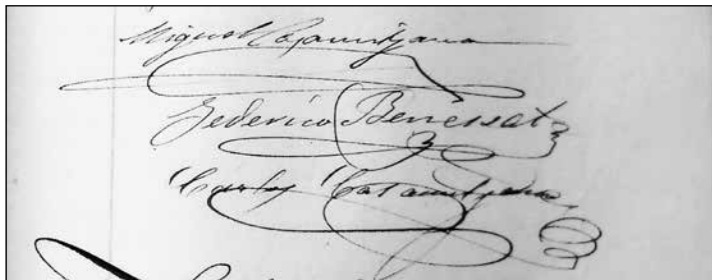 Miguel Casamitjana
Federico Benessat
Carlos Casamitjana